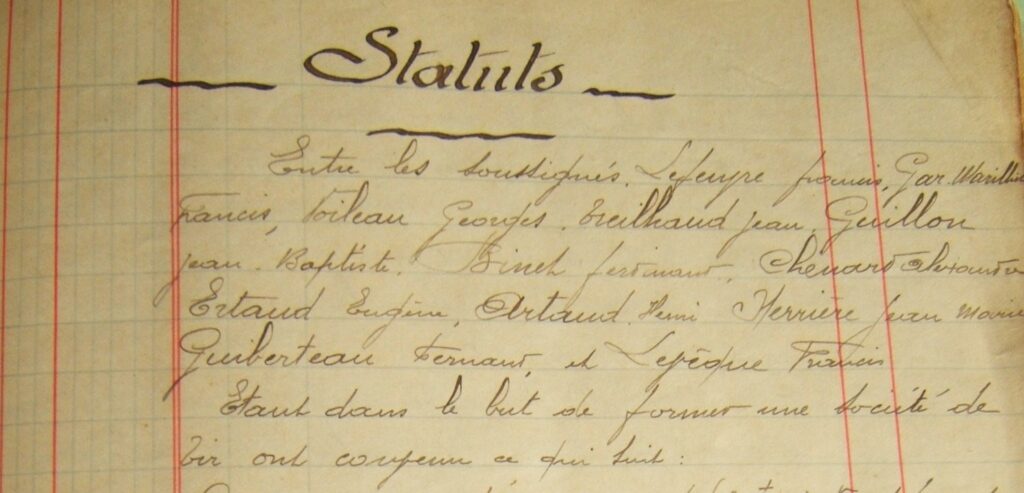 Statuts
Entre les soussignés, Lefeuvre francis, Gar
Francis, Voileau Georges, Treilhaud Jean, Guillon
Jean-Baptiste, Binet ferdinand, Chenard Alexandre
Ertaud Eugène, Artaud Henri Herrière Jean Marie
Guiberteau Fernand, et Levêque Francis
Etant dans le but de former une société de
tir ont convenu ce qui suit :